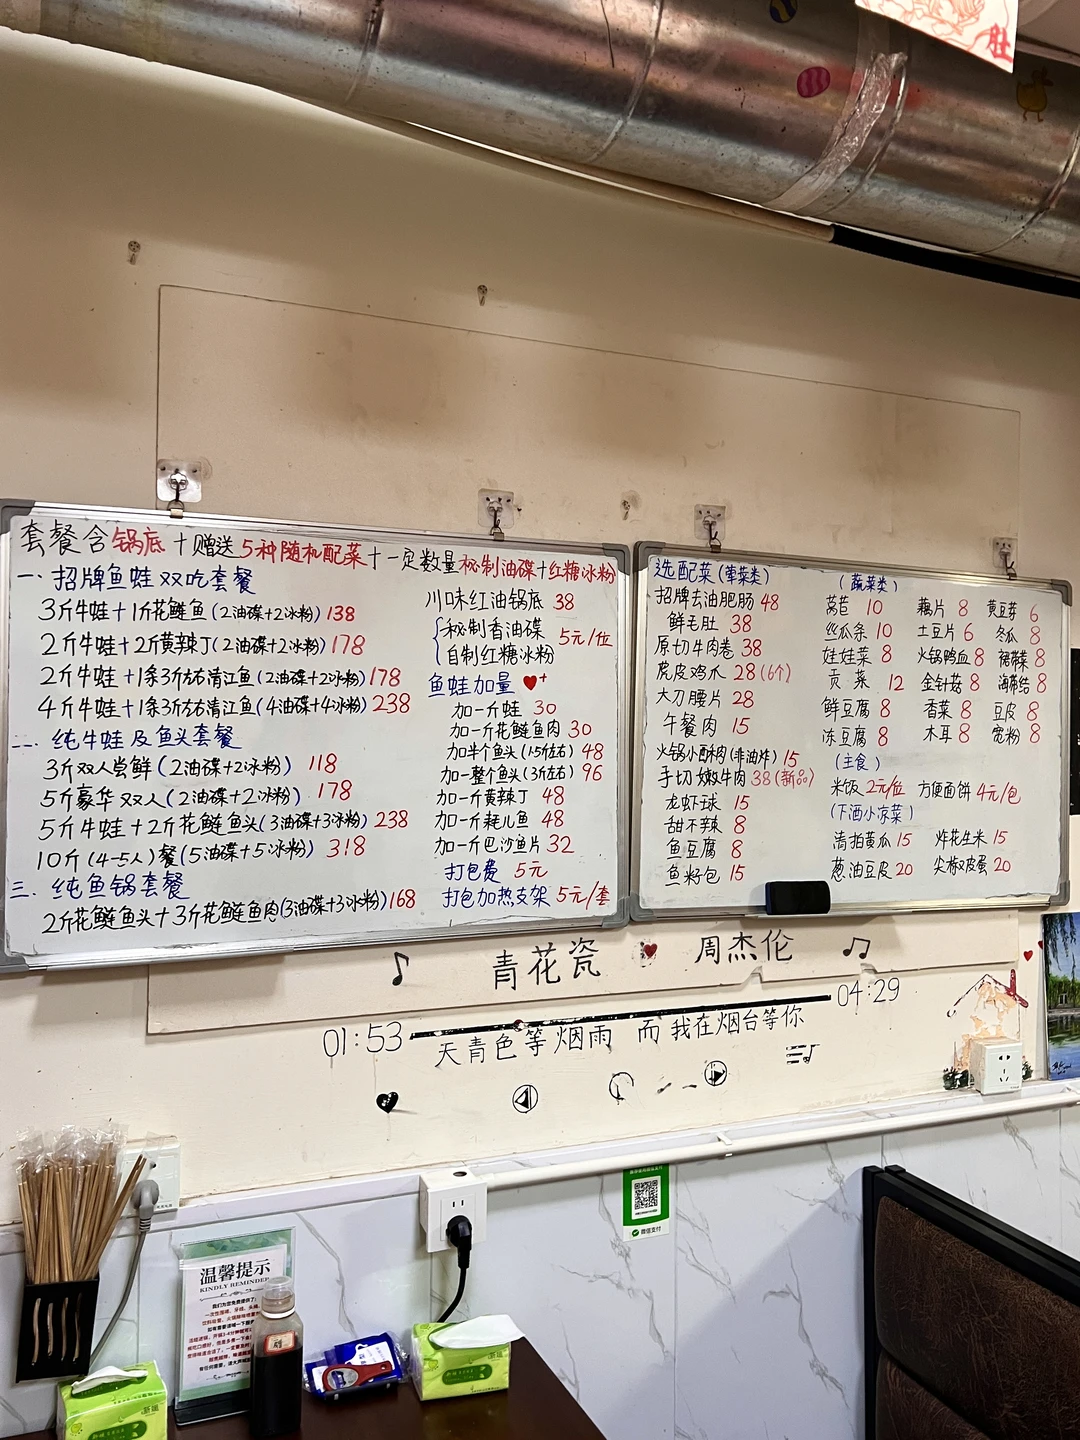 肚
套餐含锅底+赠送5种随机配菜+一定数量秘制油碟+红糖冰粉
一、招牌鱼蛙双吃套餐
3斤牛蛙+1斤花鲢鱼(2油碟+2冰粉)138
2斤牛蛙+2斤黄辣丁(2油碟+2冰粉)178
2斤牛蛙+1条3斤左右清江鱼(2油碟+2冰粉)178
4斤牛蛙+1条3斤左右清江鱼(4油碟+4冰粉)238
二、纯牛蛙及鱼头套餐
3斤双人尝鲜(2油碟+2冰粉) 118
5斤豪华双人(2油碟+2冰粉) 178
5斤牛蛙+2斤花鲢鱼头(3油碟+3冰粉)238
10斤(4-5人)餐(5油碟+5冰粉) 318
三、纯鱼锅套餐
2斤花鲢鱼头+3斤花鲢鱼肉(3油碟+3冰粉)168
川味红油锅底 38
秘制香油碟
自制红糖冰粉
5元/位
鱼蛙加量
加一斤蛙 30
加一斤花鲢鱼肉 30
加半个鱼头(1.5斤左右) 48
加一整个鱼头(3斤左右) 96
加一斤黄辣丁 48
加一斤耗儿鱼 48
加一斤巴沙鱼片 32
打包费 5元
打包加热支架 5元/套
选配菜(荤菜类)
招牌去油肥肠 48
鲜毛肚 38
原切牛肉卷 38
虎皮鸡爪 28(6个)
大刀腰片 28
午餐肉 15
火锅小酥肉(非油炸) 15
手切嫩牛肉 38(新品)
龙虾球 15
甜不辣 8
鱼豆腐 8
鱼籽包 15
(蔬菜类)
莴苣 10 藕片 8 黄豆芽 6
丝瓜条 10 土豆片 6 冬瓜 8
娃娃菜 8 火锅鸭血 8 裙带菜 8
贡菜 12 金针菇 8 海带结 8
鲜豆腐 8 香菜 8 豆皮 8
冻豆腐 8 木耳 8 宽粉 8
(主食)
米饭 2元/位 方便面饼 4元/包
(下酒小凉菜)
清拍黄瓜 15 炸花生米 15
葱油豆皮 20 尖椒皮蛋 20
青花瓷 周杰伦
01:53 04:29
天青色等烟雨 而我在烟台等你
微信支付
温馨提示
KINDLY REMINDER